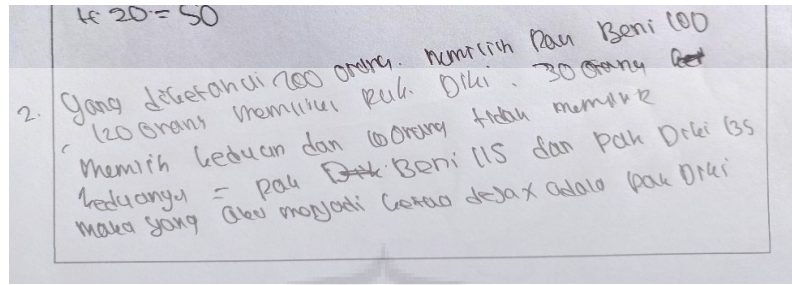 te 20 = 50
2. yang diketahui 200 orang. memilih Pau Beni 100
120 orang memilih Pak. Diki. 30 orang
memilih keduan dan 10 orang tidak memilik
keduanya = pak Beni 115 dan Pak Diki 135
maka yang aku menjadi ketua desa x adalo pak Diki